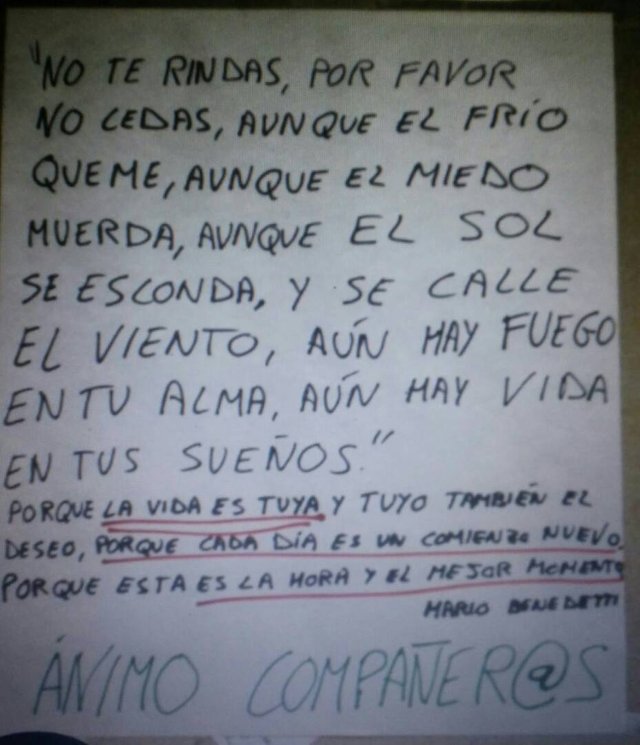 "NO TE RINDAS, POR FAVOR
NO CEDAS, AUNQUE EL FRÍO
QUEME, AUNQUE EL MIEDO
MUERDA, AUNQUE EL SOL
SE ESCONDA, Y SE CALLE
EL VIENTO, AÚN HAY FUEGO
EN TU ALMA, AÚN HAY VIDA
EN TUS SUEÑOS."
PORQUE LA VIDA ES TUYA Y TUYO TAMBIÉN EL
DESEO, PORQUE CADA DÍA ES UN COMIENZO NUEVO,
PORQUE ESTA ES LA HORA Y EL MEJOR MOMENTO
MARIO BENEDETTI
ÁNIMO COMPAÑER@S